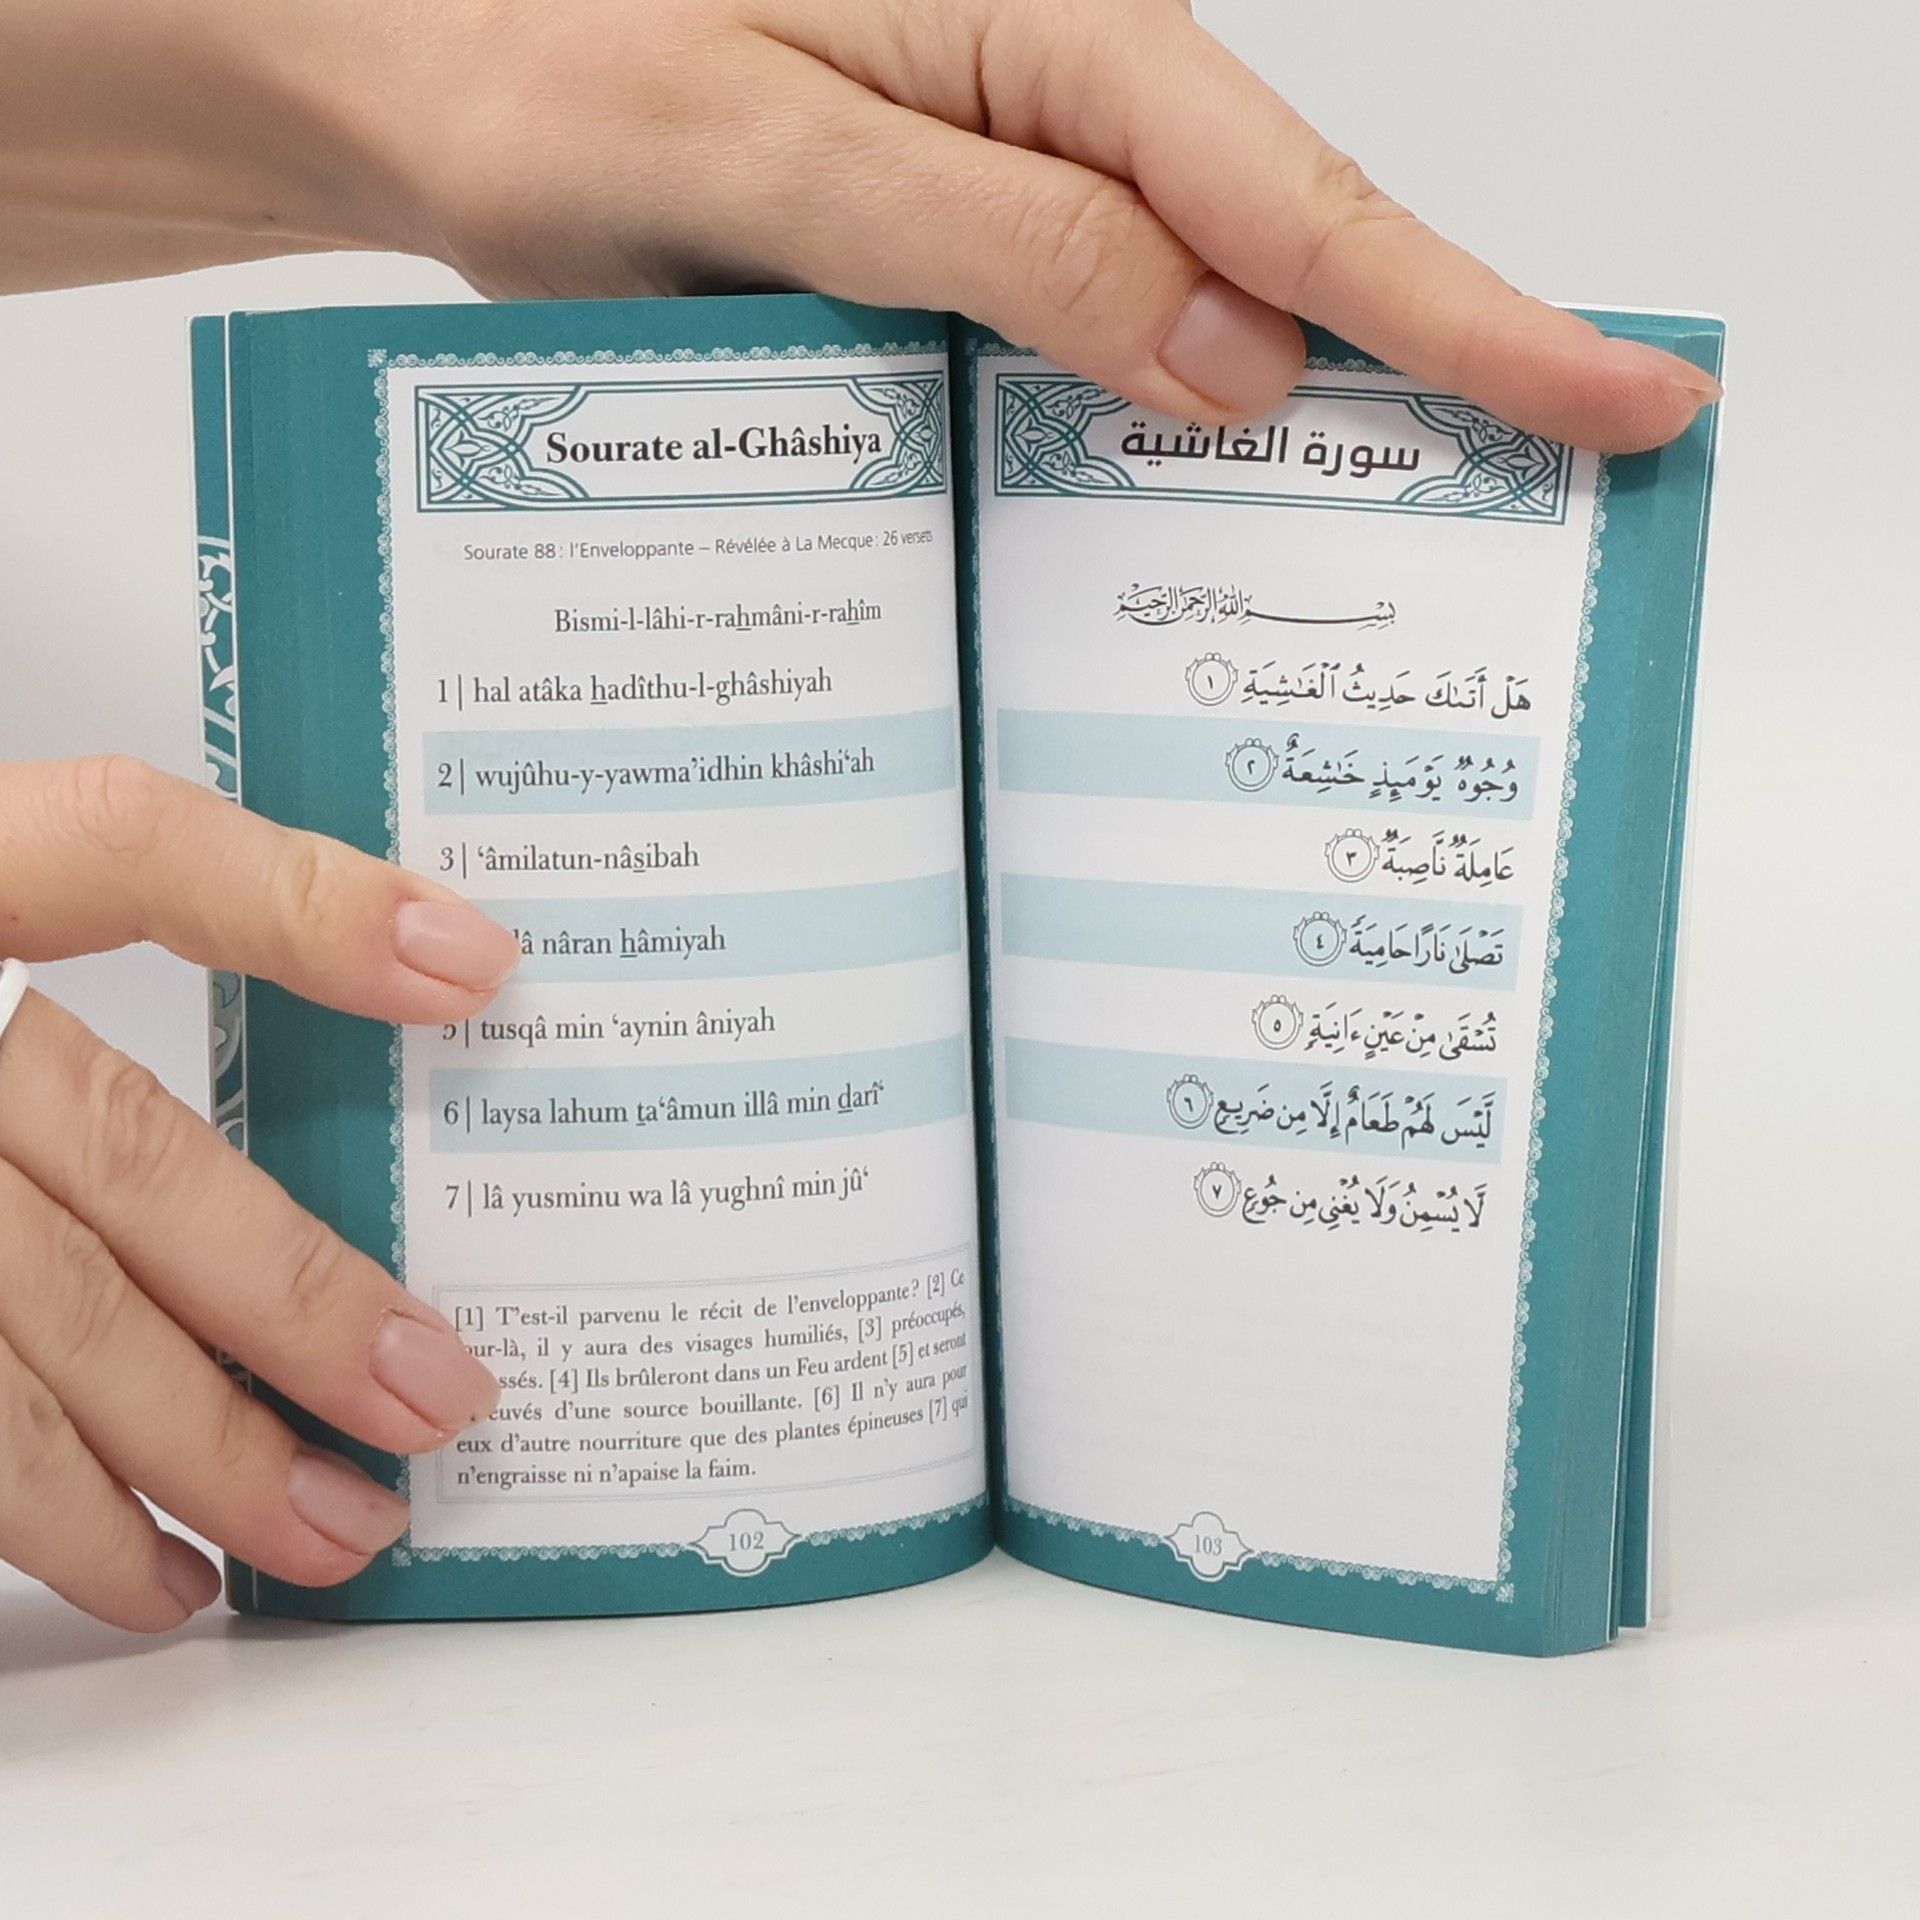 Sourate al-Ghâshiya
Sourate 88 : l'Enveloppante – Révélée à La Mecque : 26 versets
Bismi-l-lâhi-r-rahmâni-r-rahîm
1 | hal atâka hadîthu-l-ghâshiyah
2 | wujûhu-y-yawma’idhin khâshi‘ah
3 | ‘âmilatun-nâsibah
nâran hâmiyah
5 | tusqâ min ‘aynin âniyah
6 | laysa lahum ta‘âmun illâ min darî‘
7 | lâ yusminu wa lâ yughnî min jû‘
[1] T’est-il parvenu le récit de l’enveloppante? [2] Ce
il y aura des visages humiliés, [3] préoccupés,
[4] Ils brûleront dans un Feu ardent [5] et seront
d’une source bouillante. [6] Il n’y aura pour
eux d’autre nourriture que des plantes épineuses [7] qui
n’engraisse ni n’apaise la faim.
102
سورة الغاشية
بِسْمِ ٱللَّهِ ٱلرَّحْمَٰنِ ٱلرَّحِيمِ
هَلْ أَتَىٰكَ حَدِيثُ ٱلْغَٰشِيَةِ ١
وُجُوهٌ يَوْمَئِذٍ خَٰشِعَةٌ ٢
عَامِلَةٌ نَّاصِبَةٌ ٣
تَصْلَىٰ نَارًا حَامِيَةً ٤
تُسْقَىٰ مِنْ عَيْنٍ ءَانِيَةٍ ٥
لَّيْسَ لَهُمْ طَعَامٌ إِلَّا مِن ضَرِيعٍ ٦
لَّا يُسْمِنُ وَلَا يُغْنِى مِن جُوعٍ ٧
103